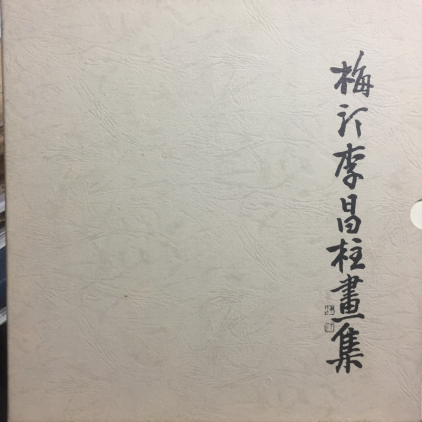 梅汀李昌柱畫集